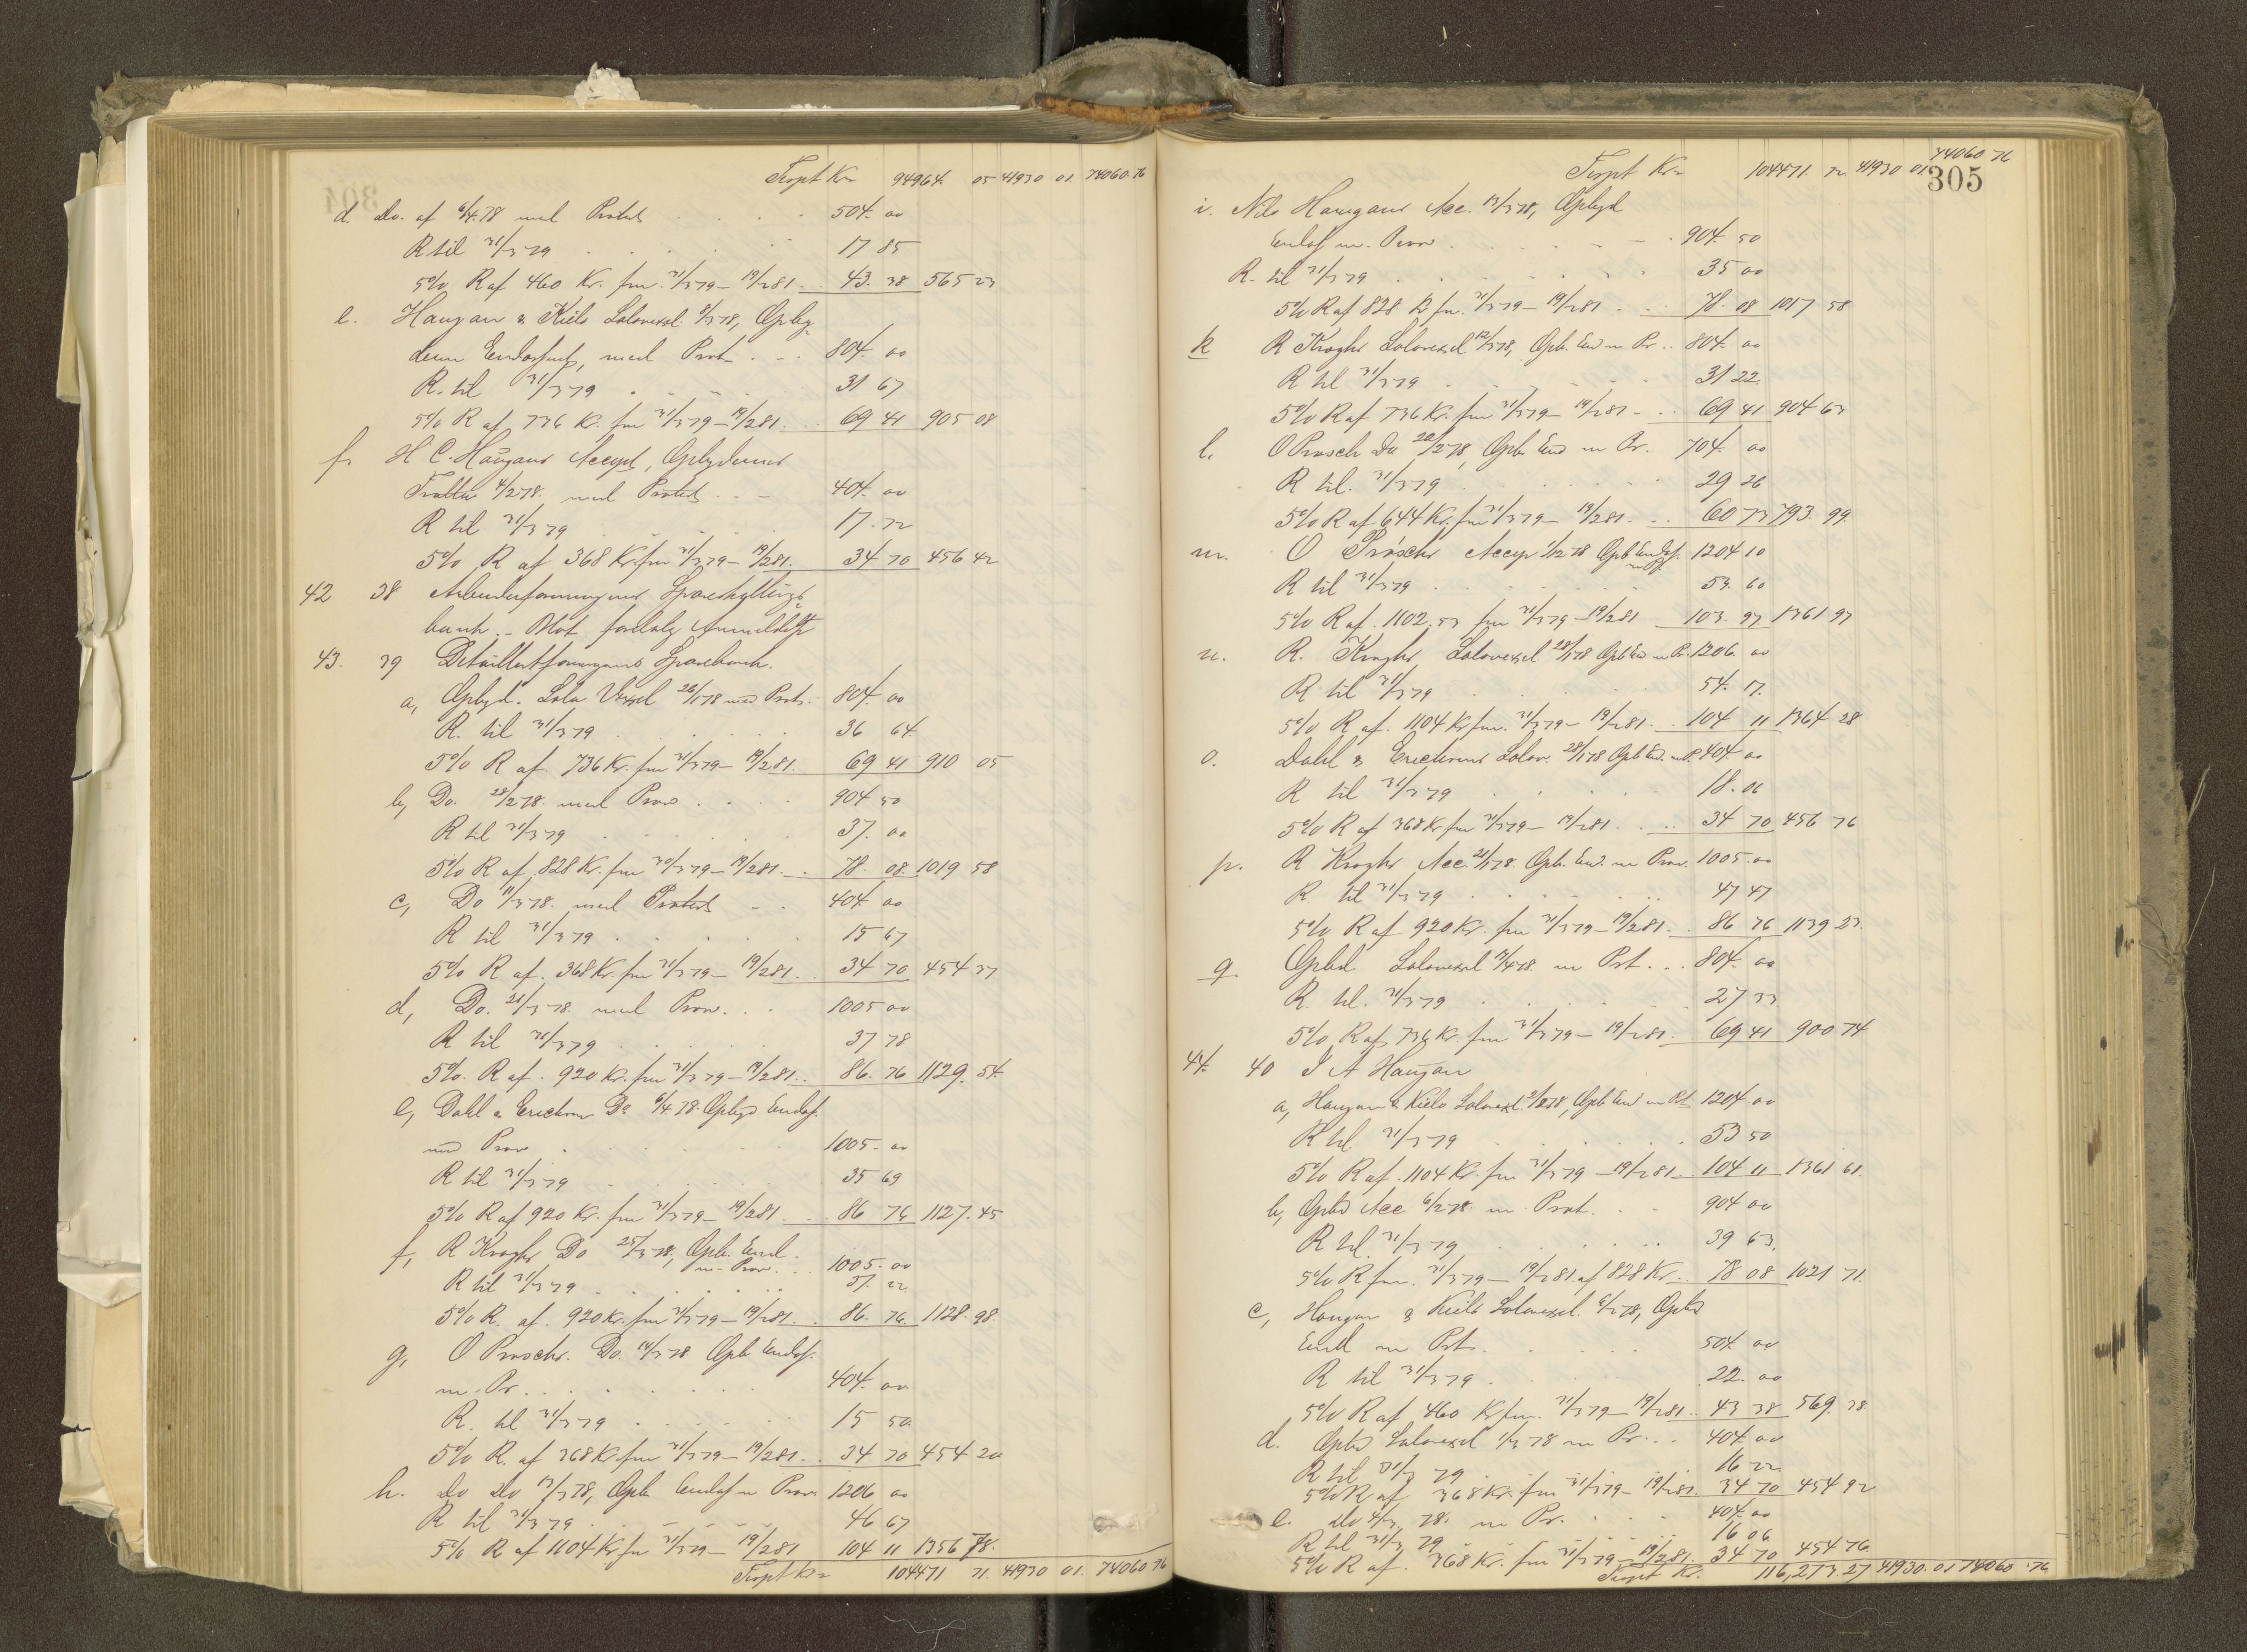 Trspt Kr 94964. 05 41930 01. 74060.76
d Do. af 6/4 78 med Protest 504. 00
R til 31/3 79 17 85
5% R af 460 Kr. fra 31/3 79 - 19/2 81 43. 38 565 23
e. Haugan & Kiels Solavexl. 9/3 78, Opbydernes Endossemt, med Prot. 804. 00
R. til 31/3 79 31 67
5% R af 736 Kr. fra 31/3 79 - 19/2 81 69 41 905 08
f. H C. Haugans Accept, Opbydernes
Tratte 4/2 78. med Protest 404. 00
R til 31/3 79 17. 72
5% R af 368 Kr. fra 31/3 79 - 19/2 81. 34 70 456 42
42 38 Arbeiderforeningens Spareskillings
bank. - Mot. foreløbig Anmeldelse
43. 39 Detaillistforeningens Sparebank.
a, Opbyd. Sola Vexel 28/1 78 med Prot. 804. 00
R. til 31/3 79 36 64
5% R af. 736 Kr. fra 31/3 79 - 19/2 81. 69 41 910 05
b, Do. 28/2 78. med Prov 904 50
R til 31/3 79 37. 00
5% R af 828 Kr. fra 30/3 79 - 19/2 81. 78. 08. 1019 58
c, Do 11/3 78. med Protest 404. 00
R til 31/3 79 15 67
5% R af. 368 Kr. fra 31/3 79 - 19/2 81. 34 70 454 37
d, Do. 21/3 78. med Prov. 1005 00
R til 31/3 79 37 78
5%. R af. 920 Kr. fra 31/3 79 - 19/2 81. 86. 76 1129. 54.
e, Dahl & Erichsens Do 6/4 78. Opbyds Endoss.
med Prov 1005. 00
R til 31/3 79 35 69
5% R af 920 Kr. fra 31/3 79 - 19/2 81 86 76 1127. 45
f, R Kroghs Do 25/3 78, Opb. End.
m. Prov. 1005. 00
R til 31/3 79 37. 22
5% R. af. 920 Kr. fra 31/3 79 - 19/2 81. 86. 76. 1128. 98.
g, O Prøschs. Do. 14/3 78 Opb Endoss.
m. Pr. 404. 00
R. til 31/3 79 15 50
5% R. af 368 Kr. fra 31/3 79 - 19/2 81. 34 70 454 20
h. Do Do 17/3 78, Opb Endoss m Prov 1206 00
R til 31/3 79 46 67
5% R af 1104 Kr fra 31/3 79 - 19/2 81 104 11 1356 78.
Trspt Kr 104471 71. 41930 01. 74060 76
305
Trspt Kr 104471. 72 41930 01 74060 76
i. Nils Haugans Acc. 13/3 78, Opbyd
Endoss m. Prov 904. 50
R. til 31/3 79 35 00
5% R af 828 K fra. 31/3 79 - 19/2 81 78. 08 1017 58
k R Kroghs Solavexel 12/3 78, Opb. End m Pr. 804. 00
R til 31/3 79 31 22
5% R af 736 Kr. fra 31/3 79 - 19/2 81 69 41 904 63
l. O Prøsch Do 22/2 78, Opb. End m Pr. 704. 00
R til. 31/3 79 29 26
5% R af 644 Kr. fra 31/3 79 - 19/2 81. 60 73 793. 99.
m. O Prøschs Accep 1/2 78 Opb Endoss. 1204 10
R til 31/3 79 53. 60
5% R af. 1102. 53 fra 31/3 79 - 19/2 81 103. 97 1361 97
n. R. Kroghs Solavexel 28/1 78 Opb End m Pr. 1206. 00
R til 31/3 79 54. 17.
5% R af. 1104 Kr fra. 31/3 79 - 19/2 81. 104 11 1364 28
o. Dahl & Erichsens Solav. 28/1 78 Opb End. m P. 404. 00
R til 31/3 79 18. 06
5% R af 368 Kr fra 31/3 79 - 19/2 81. 34 70 456 76
p. R Kroghs Acc. 21/1 78. Opb. End. m Prov. 1005. 00
R til 31/3 79 47 47
5% R af 920 Kr. fra 31/3 79 - 19/2 81. 86 76 1139 23.
q. Opbd. Solavexel 17/4 78. m Prt. 804. 00
R. til. 31/3 79 27 33
5% R af 736 Kr. fra 31/3 79 - 19/2 81. 69 41 900 74
44. 40 I A Haugan
a, Haugan & Kiels Solavexl. 2/2 78, Opb End m Prt 1204 00
R til 31/3 79 53 50
5% R af. 1104 Kr. fra 31/3 79 - 19/2 81 104 11 1361 61.
b, Opbs Acc 6/2 78. m Prot. 904 00
R til. 31/3 79 39 63.
5% R fra. 31/3 79 - 19/2 81 af 828 Kr. 78 08 1021 71.
c, Haugan & Kiels Solavexel. 6/2 78, Opbs
End m Prt. 504. 00
R til 31/3 79 22. 00
5% R af 460 Kr fra. 31/3 79 - 19/2 81. 43 38 569. 38
d. Opbs Solavexel 1/3 78 m Pr. 404. 00
R til 31/3 79 16 22
5% R af 368 Kr. fra 31/3 79 - 19/2 81. 34 70 454 92
e. Do 4/3. 78. m Pr. 404. 00
R til 31/3 79 16 06
5% R af. 368 Kr. fra 31/3 79 - 19/2 81. 34 70 454 76
Trspt Kr. 116,273. 27 41930. 01 74060. 76